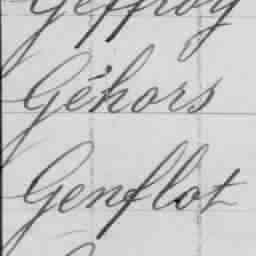 Geffroy
Géhors
Genflot